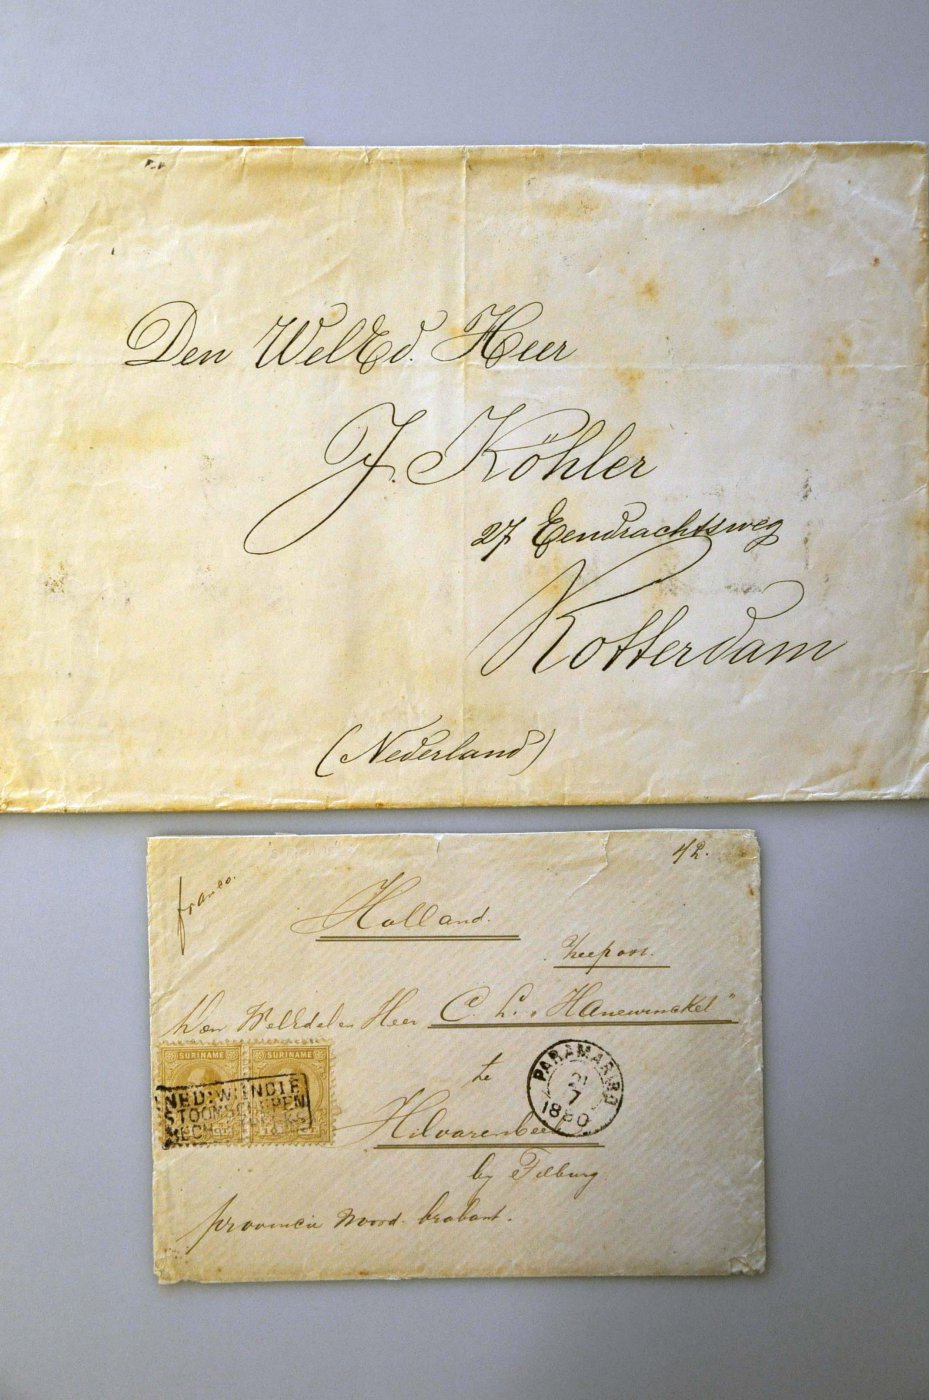 Den WelEd. Heer
J. Köhler
27 Eendrachtsweg
Rotterdam
(Nederland)
franco.
42.
Holland.
Den WelEdelen Heer C. L. Hanewinckel
te
Hilvarenbeek
by Tilburg
provincie Noord-brabant.
SURINAME SURINAME
NED: W: INDIE
STOOMSCHEPEN
PARAMARIBO
21
7
1880